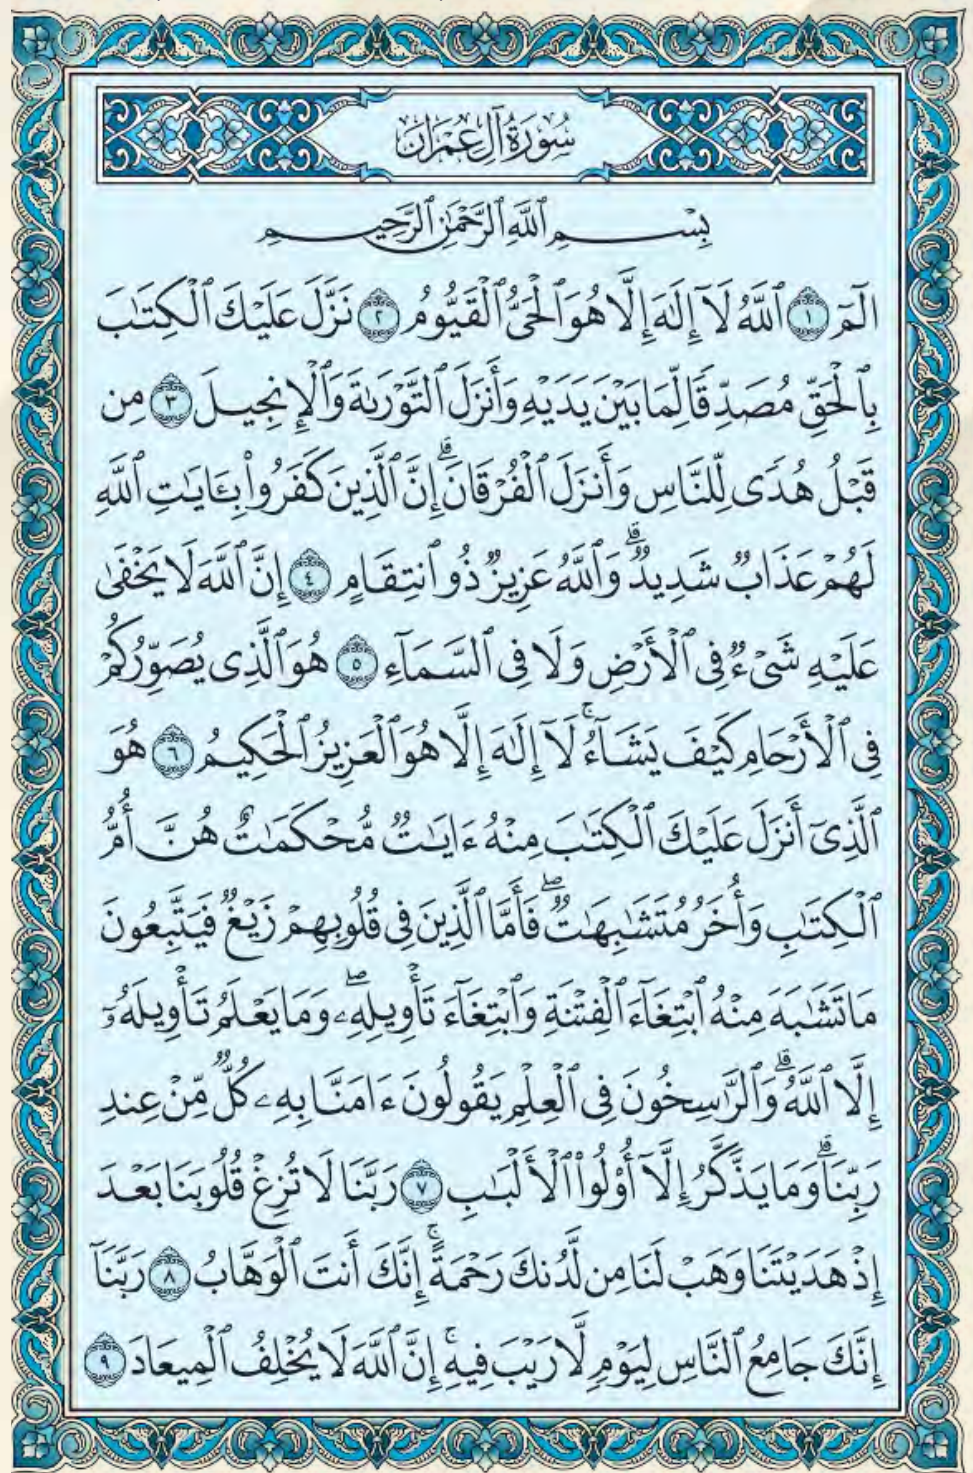 سُورَةُ آلِ عِمۡرَانَ
بِسۡمِ ٱللَّهِ ٱلرَّحۡمَٰنِ ٱلرَّحِيمِ
الٓمٓ ١ ٱللَّهُ لَآ إِلَٰهَ إِلَّا هُوَ ٱلۡحَيُّ ٱلۡقَيُّومُ ٢ نَزَّلَ عَلَيۡكَ ٱلۡكِتَٰبَ
بِٱلۡحَقِّ مُصَدِّقٗا لِّمَا بَيۡنَ يَدَيۡهِ وَأَنزَلَ ٱلتَّوۡرَىٰةَ وَٱلۡإِنجِيلَ ٣ مِن
قَبۡلُ هُدٗى لِّلنَّاسِ وَأَنزَلَ ٱلۡفُرۡقَانَۗ إِنَّ ٱلَّذِينَ كَفَرُواْ بِـَٔايَٰتِ ٱللَّهِ
لَهُمۡ عَذَابٞ شَدِيدٞۗ وَٱللَّهُ عَزِيزٞ ذُو ٱنتِقَامٍ ٤ إِنَّ ٱللَّهَ لَا يَخۡفَىٰ
عَلَيۡهِ شَيۡءٞ فِي ٱلۡأَرۡضِ وَلَا فِي ٱلسَّمَآءِ ٥ هُوَ ٱلَّذِي يُصَوِّرُكُمۡ
فِي ٱلۡأَرۡحَامِ كَيۡفَ يَشَآءُۚ لَآ إِلَٰهَ إِلَّا هُوَ ٱلۡعَزِيزُ ٱلۡحَكِيمُ ٦ هُوَ
ٱلَّذِيٓ أَنزَلَ عَلَيۡكَ ٱلۡكِتَٰبَ مِنۡهُ ءَايَٰتٞ مُّحۡكَمَٰتٌ هُنَّ أُمُّ
ٱلۡكِتَٰبِ وَأُخَرُ مُتَشَٰبِهَٰتٞۖ فَأَمَّا ٱلَّذِينَ فِي قُلُوبِهِمۡ زَيۡغٞ فَيَتَّبِعُونَ
مَا تَشَٰبَهَ مِنۡهُ ٱبۡتِغَآءَ ٱلۡفِتۡنَةِ وَٱبۡتِغَآءَ تَأۡوِيلِهِۦۖ وَمَا يَعۡلَمُ تَأۡوِيلَهُۥٓ
إِلَّا ٱللَّهُۗ وَٱلرَّٰسِخُونَ فِي ٱلۡعِلۡمِ يَقُولُونَ ءَامَنَّا بِهِۦ كُلّٞ مِّنۡ عِندِ
رَبِّنَاۗ وَمَا يَذَّكَّرُ إِلَّآ أُوْلُواْ ٱلۡأَلۡبَٰبِ ٧ رَبَّنَا لَا تُزِغۡ قُلُوبَنَا بَعۡدَ
إِذۡ هَدَيۡتَنَا وَهَبۡ لَنَا مِن لَّدُنكَ رَحۡمَةًۚ إِنَّكَ أَنتَ ٱلۡوَهَّابُ ٨ رَبَّنَآ
إِنَّكَ جَامِعُ ٱلنَّاسِ لِيَوۡمٖ لَّا رَيۡبَ فِيهِۚ إِنَّ ٱللَّهَ لَا يُخۡلِفُ ٱلۡمِيعَادَ ٩